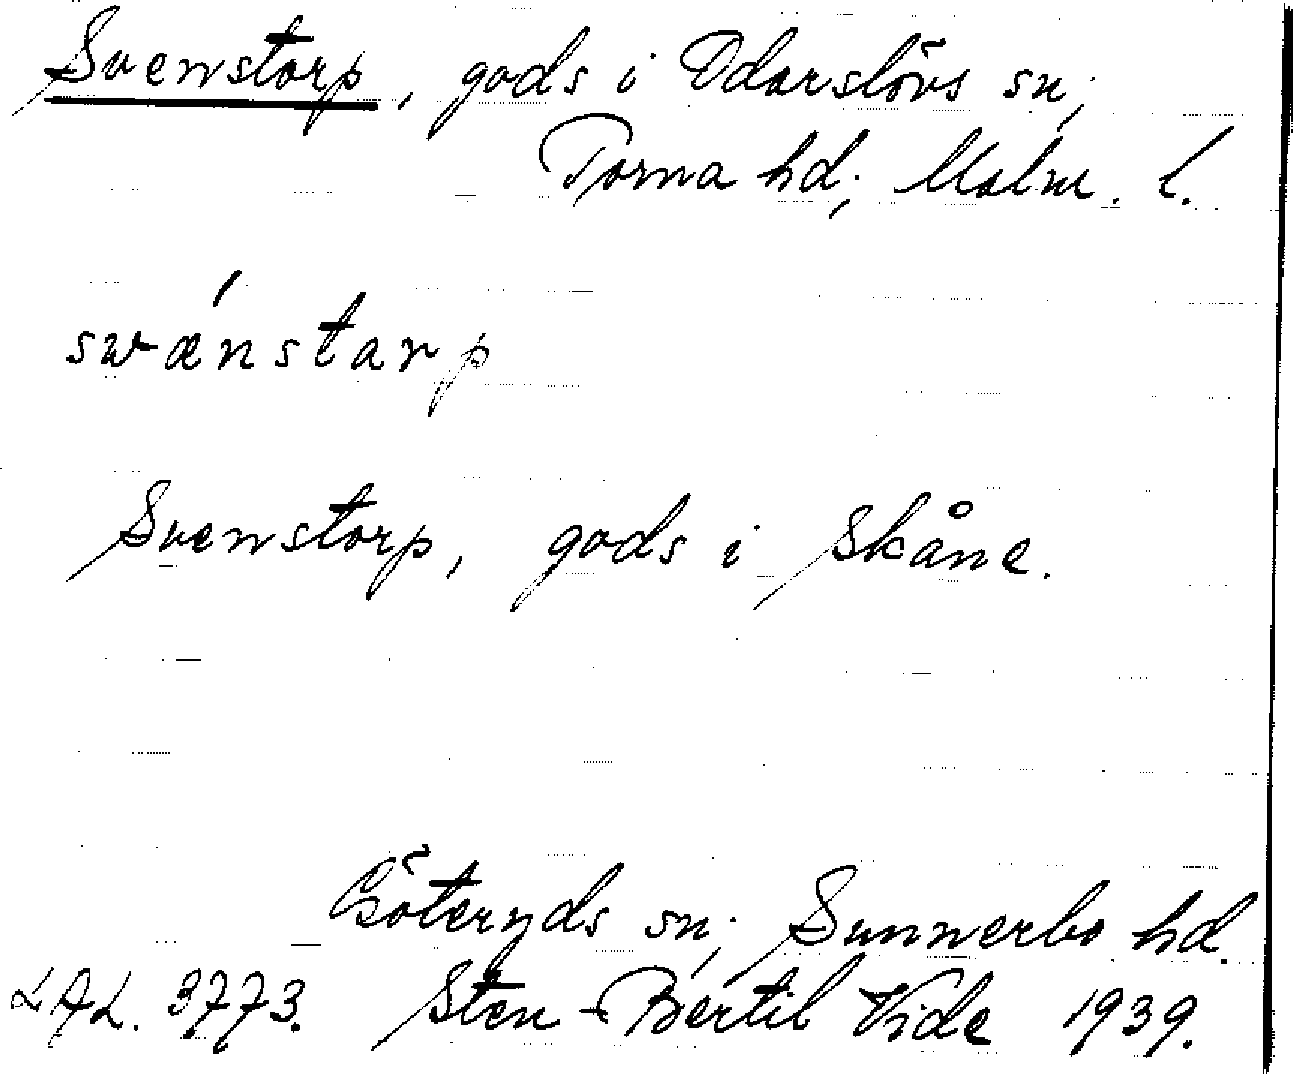 Svenstorp, gods i Odarslövs sn;
Torna hd; Malm. l.
swǽnstarp
Svenstorp, gods i Skåne.
Göteryds sn; Sunnerbo hd.
LAL. 3773. Sten-Bertil Vide 1939.